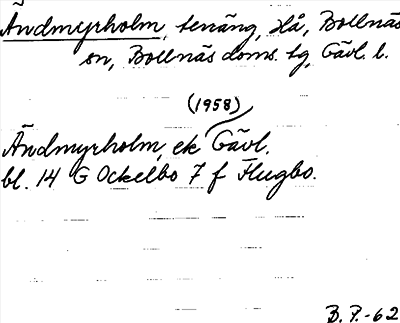 Ändmyrholm, terräng, Hå, Bollnäs
sn, Bollnäs doms. tg, Gävl. l.
(1958)
Ändmyrholm, ek Gävl.
bl. 14 G Ockelbo 7 f Flugbo.
B. P. -62